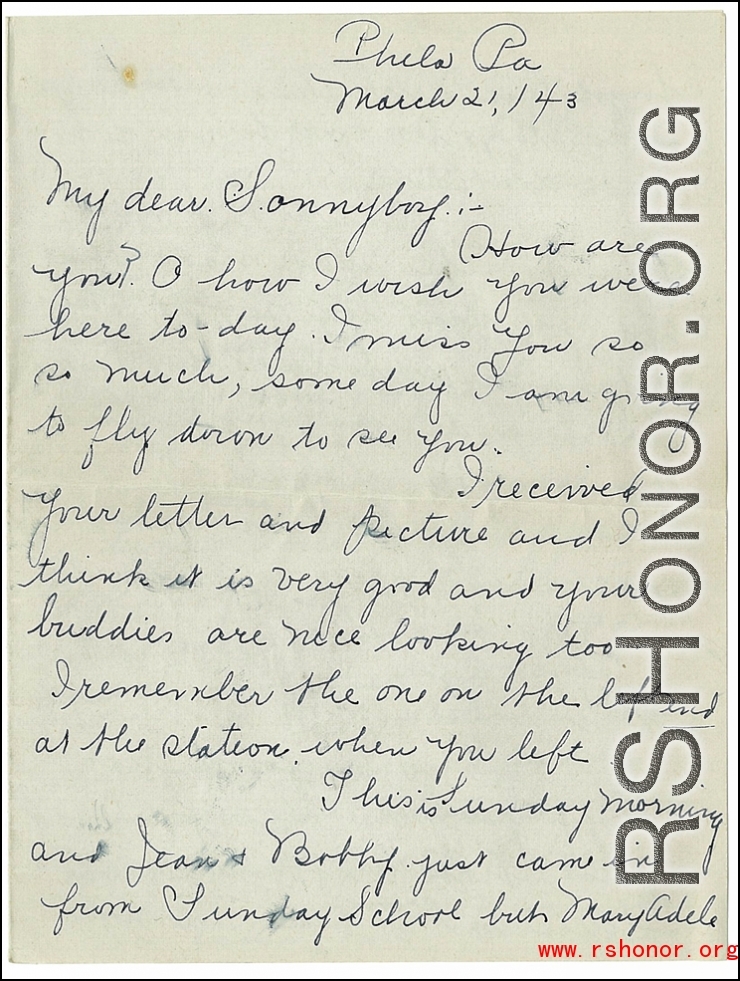 Phila Pa
March 21, / 43
My dear. Sonnyboy. :-
How are
you?. O how I wish you were
here to-day. I miss you so
so much, some day I am going
to fly down to see you.
I received
your letter and picture and I
think it is very good and your
buddies are nice looking too
I remember the one on the left end
at the station. when you left
This is Sunday morning
and Jean & Bobby. just came in
from Sunday School but Mary Adele
RSHONOR.ORG
www.rshonor.org